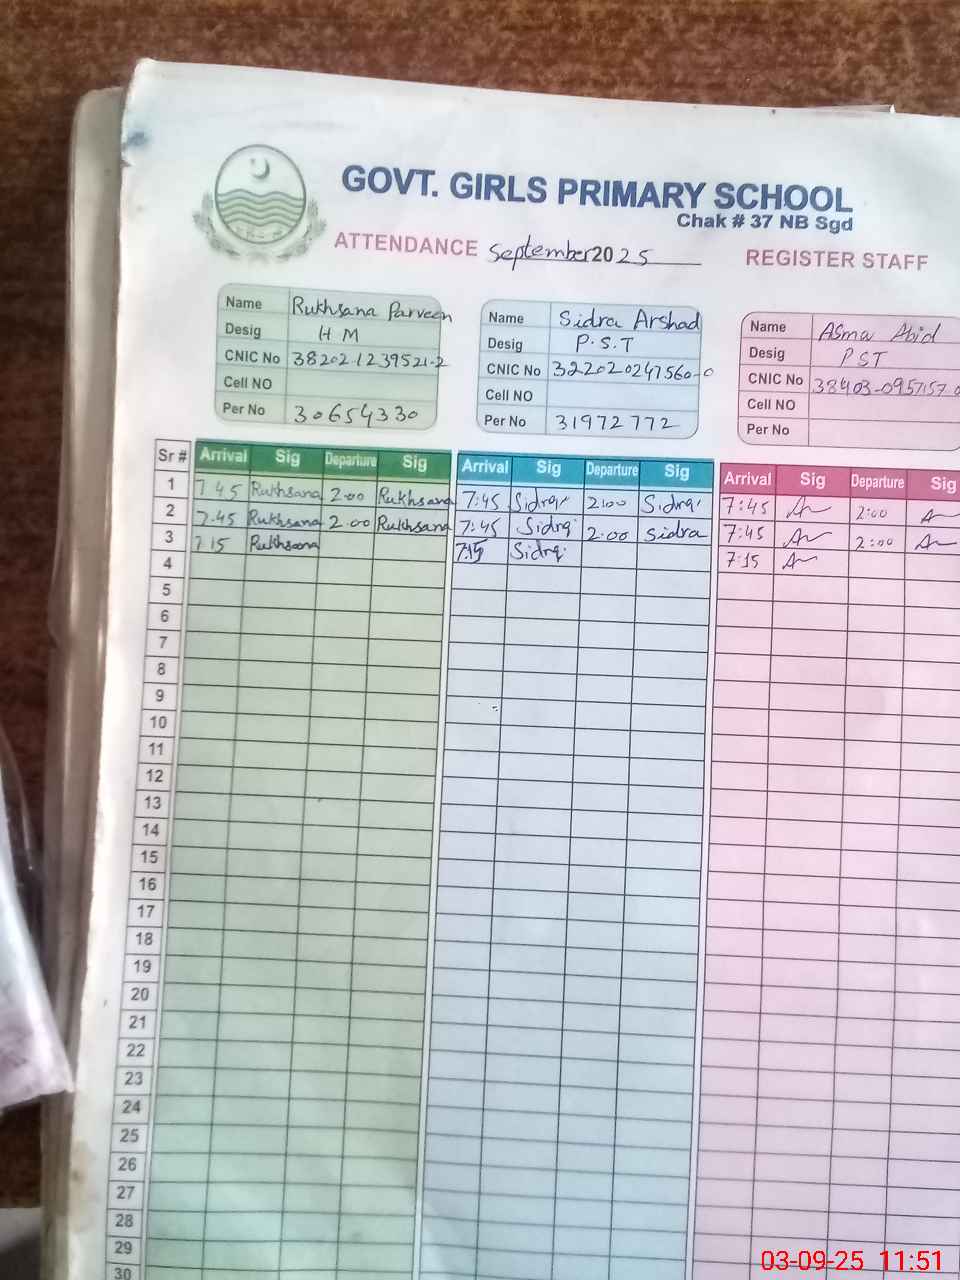 GOVT. GIRLS PRIMARY SCHOOL
Chak # 37 NB Sgd
ATTENDANCE September 2025 REGISTER STAFF
Name Rukhsana Parveen
Desig H M
CNIC No 38202-1239521-2
Cell NO
Per No 30654330
Name Sidra Arshad
Desig P.S.T
CNIC No 322020247560-0
Cell NO
Per No 31972772
Name Asma Abid
Desig PST
CNIC No
Cell NO
Per No
Sr # Arrival Sig Departure Sig Arrival Sig Departure Sig Arrival Sig Departure Sig
1 7.45 Rukhsana 2.00 Rukhsana 7:45 Sidra 2:00 Sidra 7:45 2:00
2 7.45 Rukhsana 2.00 Rukhsana 7:45 Sidra 2:00 Sidra 7:45 2:00
3 7.15 Rukhsana 7:15 Sidra 7:15
4
5
6
7
8
9
10
11
12
13
14
15
16
17
18
19
20
21
22
23
24
25
26
27
28
29
30
03-09-25 11:51